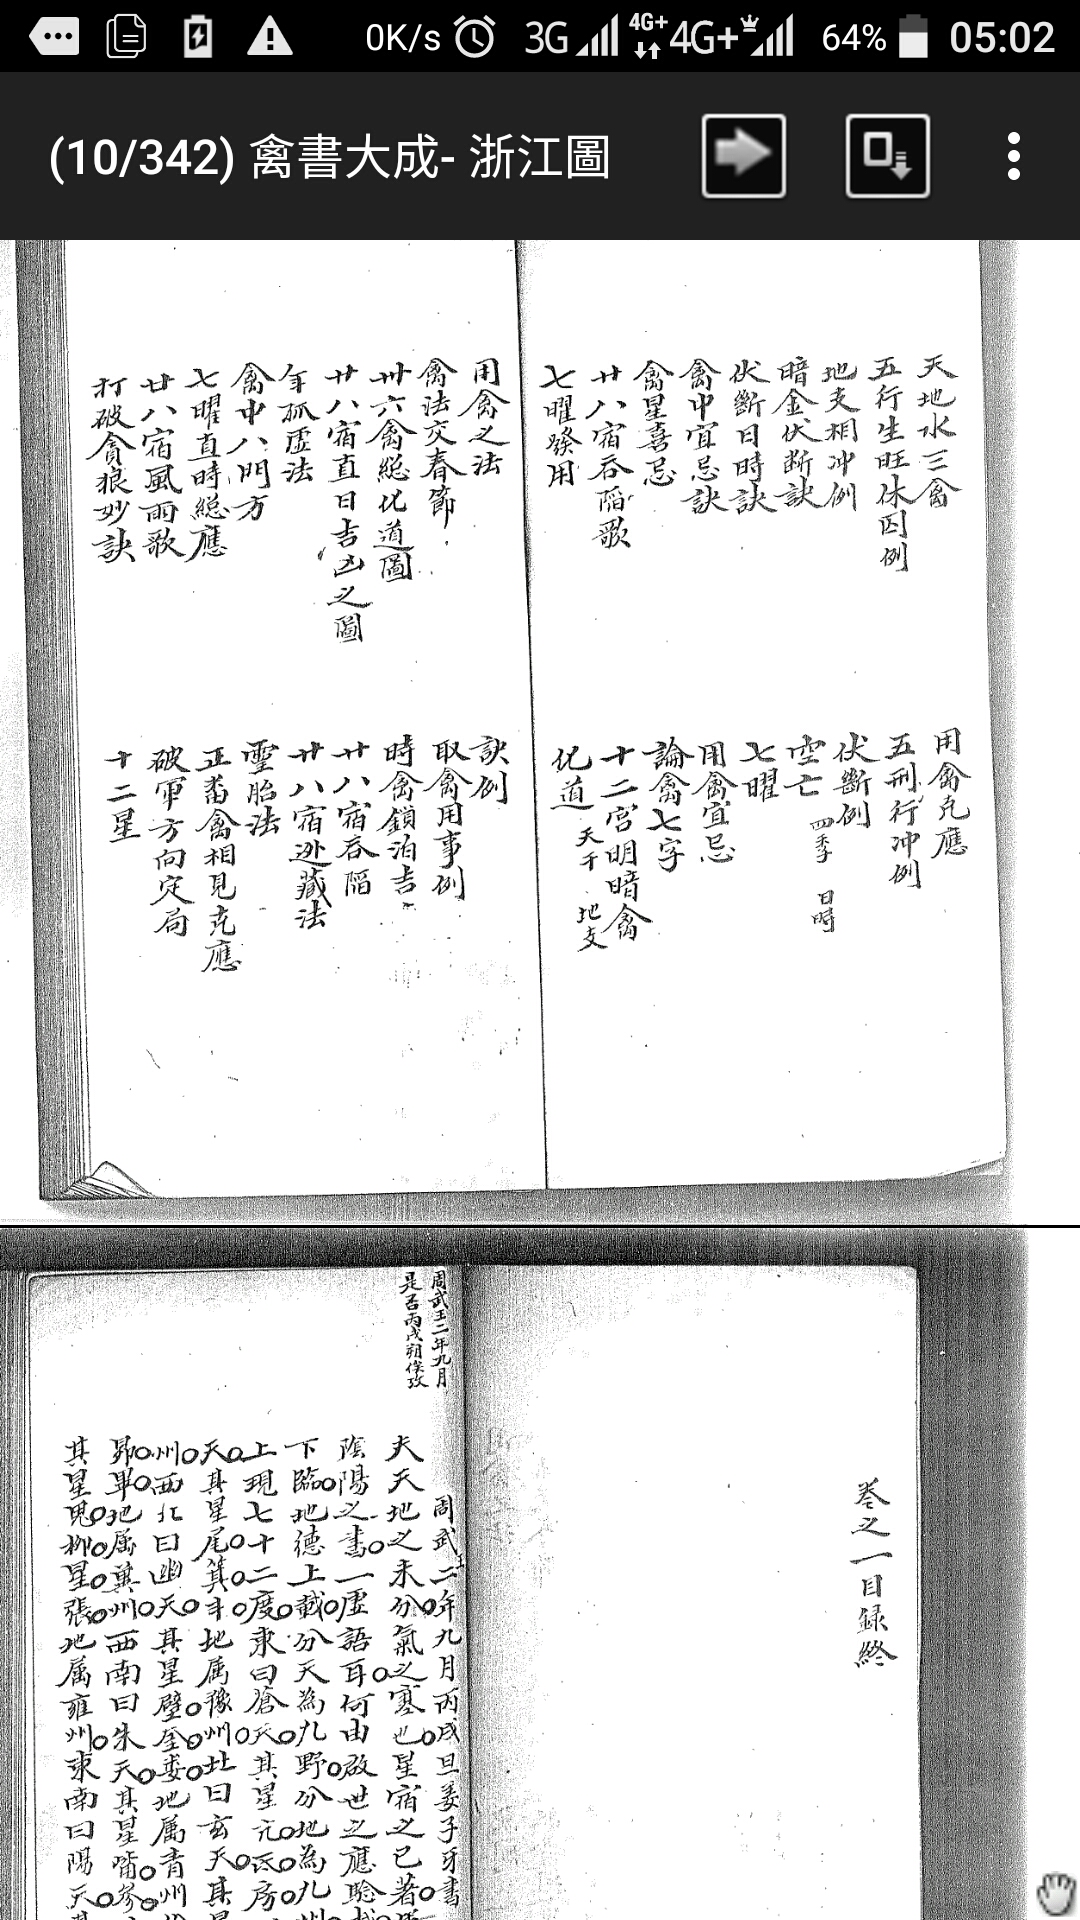 0K/s 3G 4G+ 4G+ 64% 05:02
(10/342) 禽書大成- 浙江圖
天地水三禽
五行生旺休囚例
地支相冲例
暗金伏断訣
伏斷日時訣
禽中宜忌訣
禽星喜忌
廿八宿吞陷歌
七曜發用
用禽克應
五刑行冲例
伏斷例
空亡 四季 日時
七曜
用禽宜忌
論禽七字
十二宮明暗禽
化道 天干 地支
用禽之法
禽法交春節
卅六禽総化道圖
廿八宿直日吉凶之圖
年孤虛法
禽中八門方
七曜直時総應
廿八宿風雨歌
打破貪狼妙訣
訣例
取禽用事例
時禽鎖泊吉
廿八宿吞陷
廿八宿逊藏法
靈胎法
正畨禽相見克應
破軍方向定局
十二星
卷之一目録終
周武王二年九月
是否丙戌朔俟攷
周武王二年九月丙戌旦姜子牙書
夫天地之未分氣之寒也星宿之已著
陰陽之書一虛語耳何由啟世之應驗
下臨地德上載分天為九野分地為九州
上現七十二度東曰蒼天其星亢氐房
天其星尾箕斗地属豫州北曰玄天其
州西北曰幽天其星壁奎婁地属青州
昴畢地属冀州西南曰朱天其星觜参
其星鬼柳星張地属雍州東南曰陽天